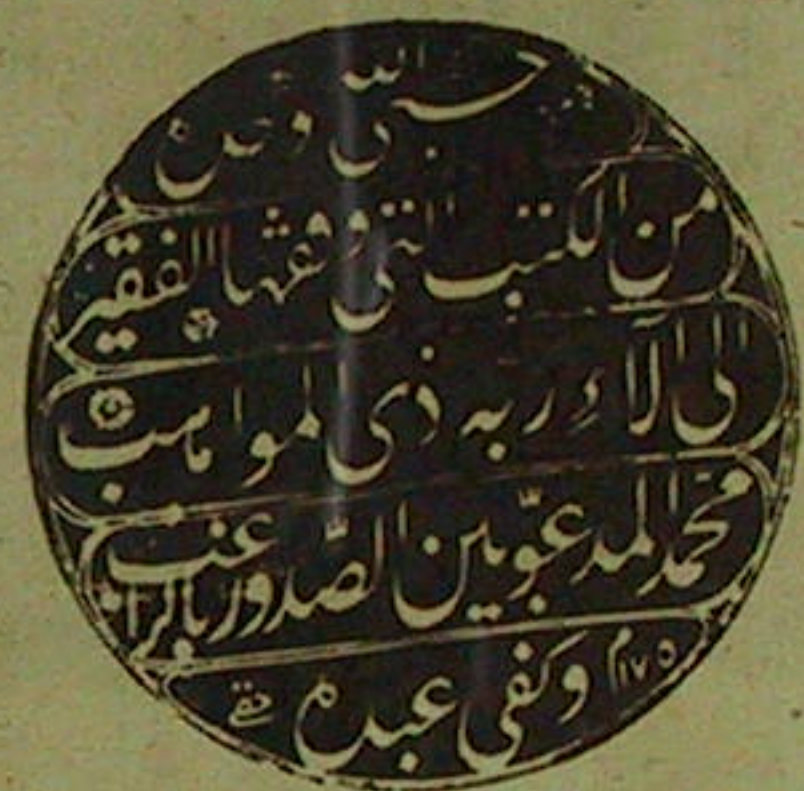 حسبى الله وحده
من الكتب التى وقفها الفقير
الى آلاء ربه ذى المواهب
محمد المدعو بين الصدور بالراغب
وكفى عبده ١١٧٥ م
حقى